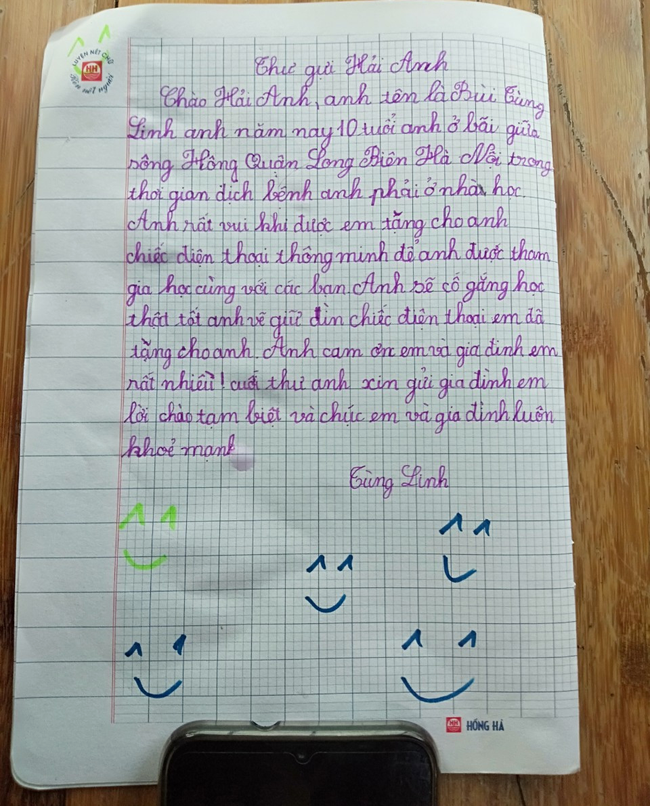 LUYỆN NÉT CHỮ
HH
RÈN NẾT NGƯỜI
Thư gửi Hải Anh
Chào Hải Anh, anh tên là Bùi Tùng
Linh anh năm nay 10 tuổi anh ở bãi giữa
sông Hồng Quận Long Biên Hà Nội trong
thời gian dịch bệnh anh phải ở nhà học.
Anh rất vui khi được em tặng cho anh
chiếc điện thoại thông minh để anh được tham
gia học cùng với các bạn Anh sẽ cố gắng học
thật tốt anh sẽ giữ dìn chiếc điện thoại em đã
tặng cho anh. Anh cảm ơn em và gia đình em
rất nhiều! cuối thư anh xin gửi gia đình em
lời chào tạm biệt và chúc em và gia đình luôn
khoẻ mạnh
Tùng Linh
HH HỒNG HÀ